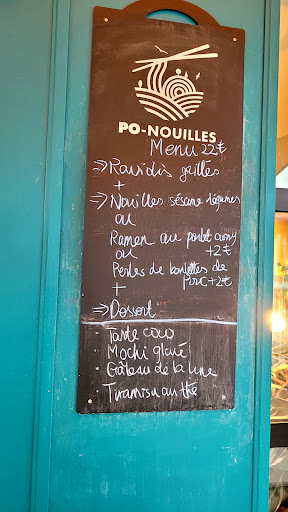 PO-NOUILLES
Menu 22€
⇒ Raviolis grillés
+
⇒ Nouilles sésame légumes
ou
Ramen au poulet
ou +2€
Perles de boulettes de
porc +2€
+
⇒ Dessert
Tarte coco
• Mochi glacé
• Gâteau de la lune
Tiramisu au thé